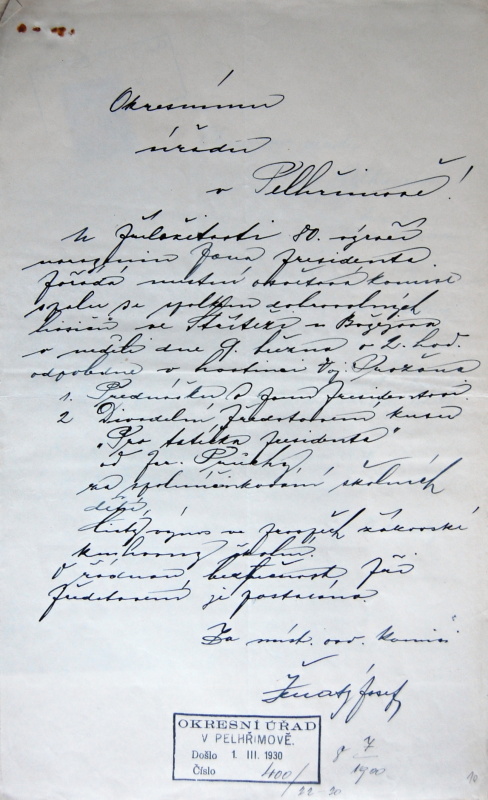 Okresnímu
úřadu
v Pelhřimově!
U příležitosti 80. výročí
narozenin pana presidenta
pořádá místní osvětová komise
spolu se spolkem dobrovolných
hasičů ve Střítěži u Božejova
v neděli dne 9. března o 2. hod.
odpoledne v hostinci
1. Přednášku o panu presidentovi.
2 Divadelní představení kusu
"Pro tatíčka presidenta"
od Fr. Průchy
za spoluúčinkování školních
dětí.
Čistý výnos ve prospěch žákovské
knihovny školní.
O řádnou bezpečnost při
představení je postaráno.
Za míst. osv. komisi
Josef
OKRESNÍ ÚŘAD
V PELHŘIMOVĚ.
Došlo 1. III. 1930
Číslo 400/
22-20
7
1900
10